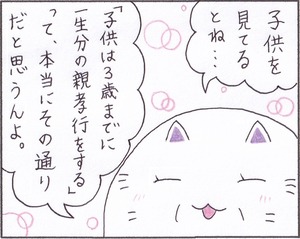 子供を
見てる
とね…
「子供は3歳までに
一生分の親孝行をする」
って、本当にその通り
だと思うんよ。